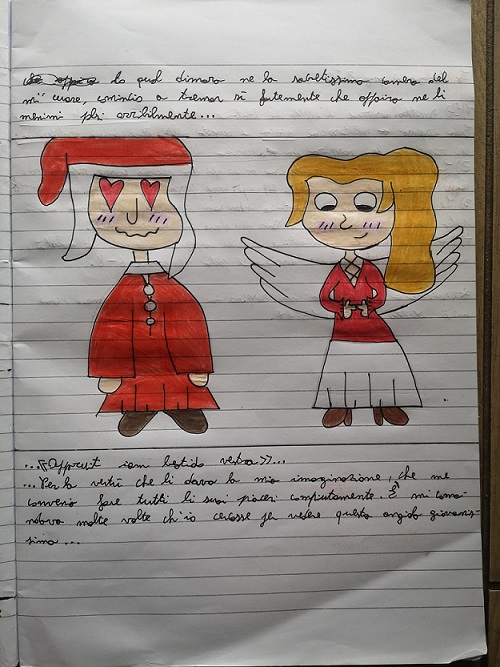 lo qual dimora ne la secretissima camera del
mi' cuore, cominciò a tremar sì fortemente che appariva ne li
menimi polsi orribilmente...
...<<Apparuit iam bestido vestra>>...
...Per la vertù che li dava la mia imaginazione, che me
convenia fare tutti li suoi piaceri compiutamente. E mi coman-
dava molte volte ch'io cercasse per vedere questa angiola giovanis-
sima...